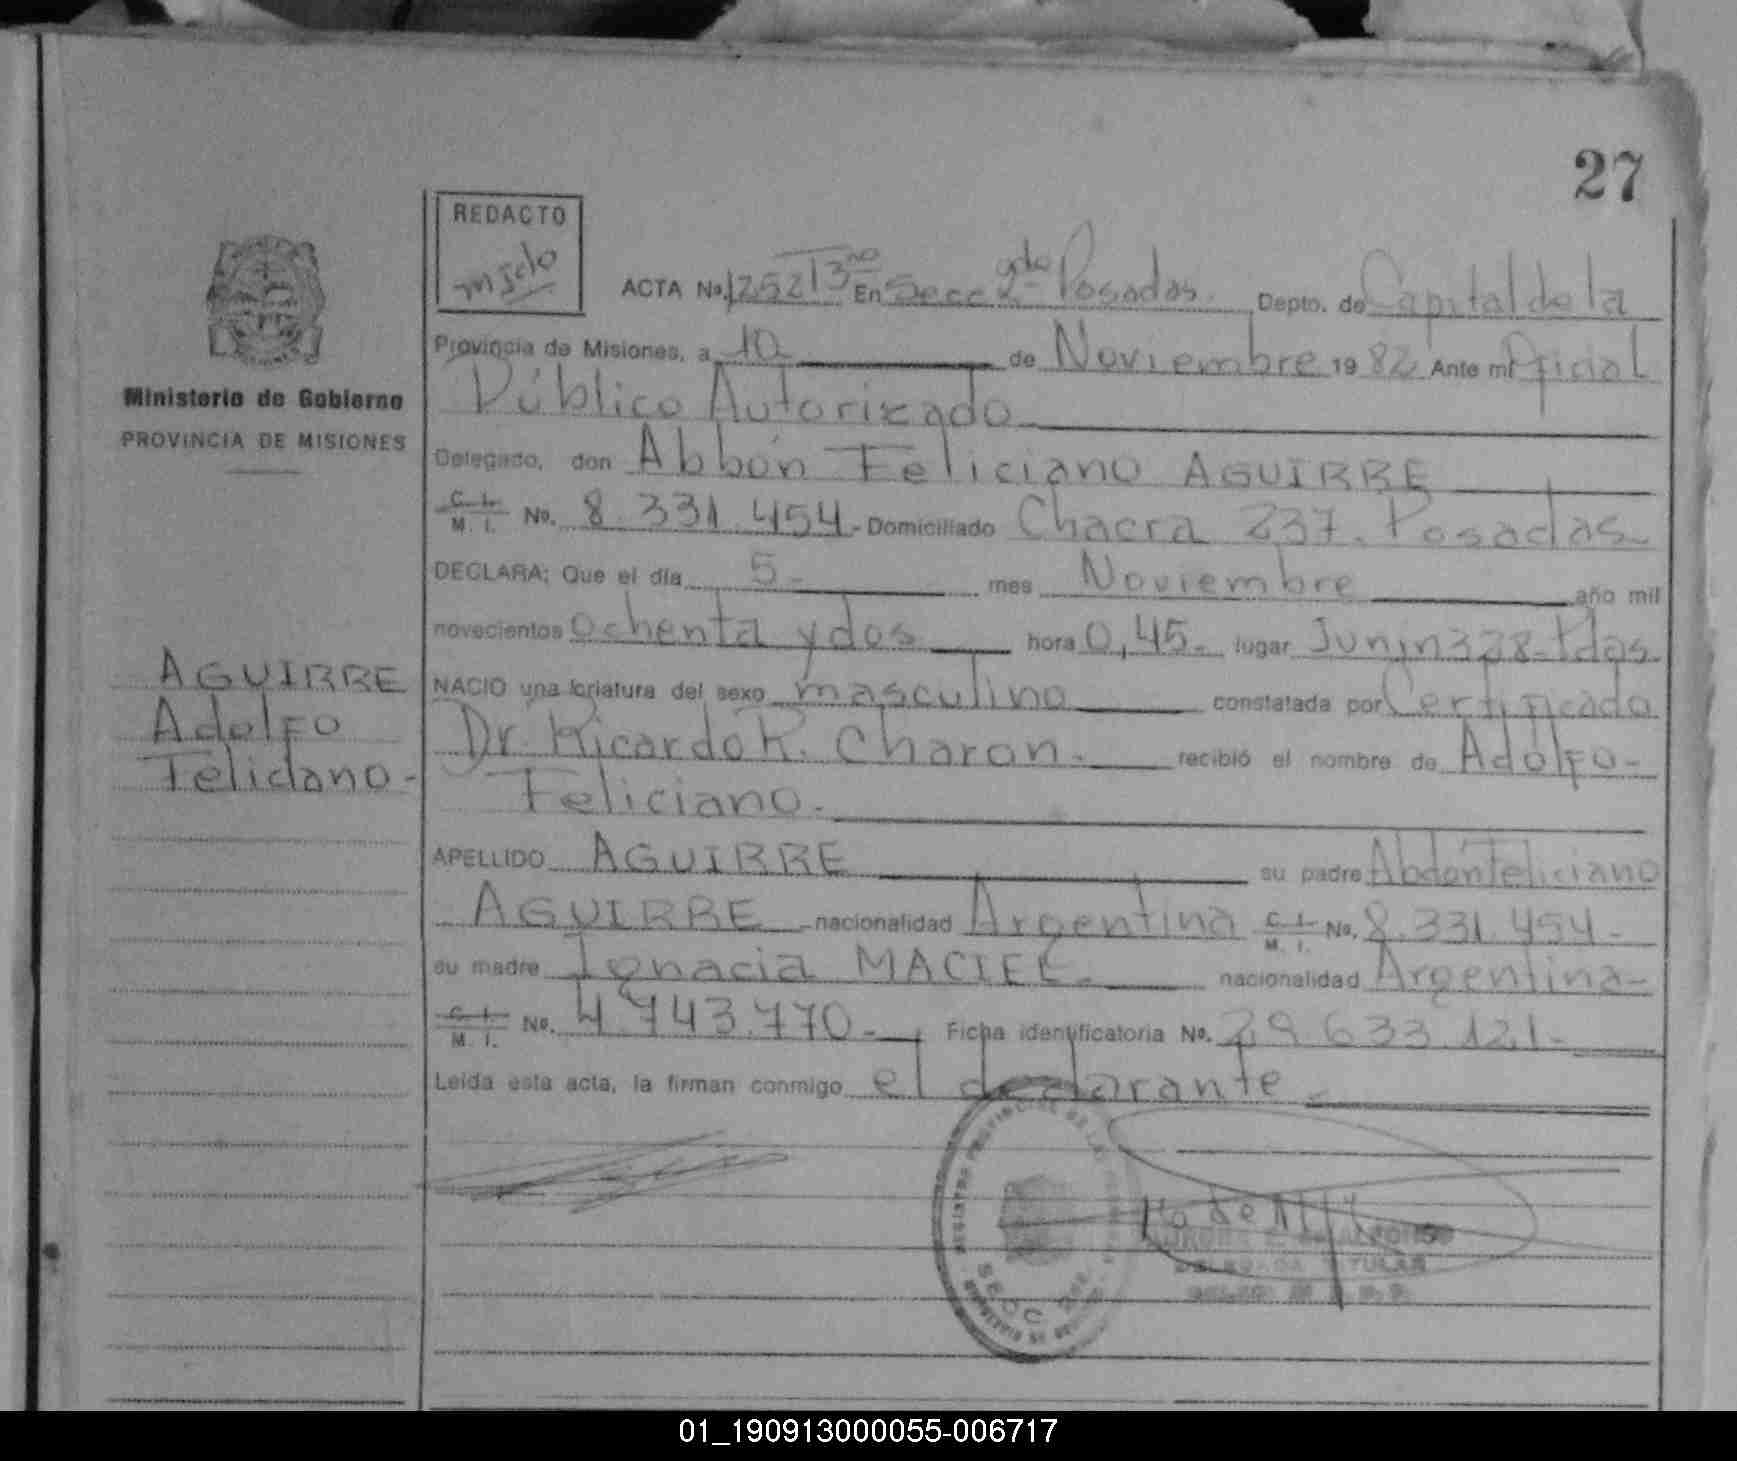 27
REDACTO
ACTA No. 1252 T3no En Secc 2gda Posadas. Depto. de Capital de la
Provincia de Misiones, a 10 de Noviembre 19 82 Ante mi Oficial
Público Autorizado
Ministerio de Gobierno
PROVINCIA DE MISIONES
Delegado, don Abbón Feliciano AGUIRRE
C. I. M. I. No. 8.331.454.- Domiciliado Chacra 237. Posadas
DECLARA: Que el día 5- mes Noviembre año mil
novecientos ochenta y dos hora 0,45.- lugar Junin 328-Pdas
AGUIRRE
Adolfo
Feliciano-
NACIO una criatura del sexo masculino constatada por Certificado
Dr. Ricardo R. Charon.- recibió el nombre de Adolfo-
Feliciano.-
APELLIDO AGUIRRE su padre Abdón Feliciano
AGUIRRE nacionalidad Argentina C. I. M. I. No. 8.331.454-
su madre Ignacia MACIEL- nacionalidad Argentina-
C. I. M. I. No. 4.743.770- Ficha identificatoria No. 29.633.121-
Leída esta acta, la firman conmigo el declarante
REGISTRO PROVINCIAL DE LAS
SECC 2da
DELEGADA TITULAR
01_190913000055-006717